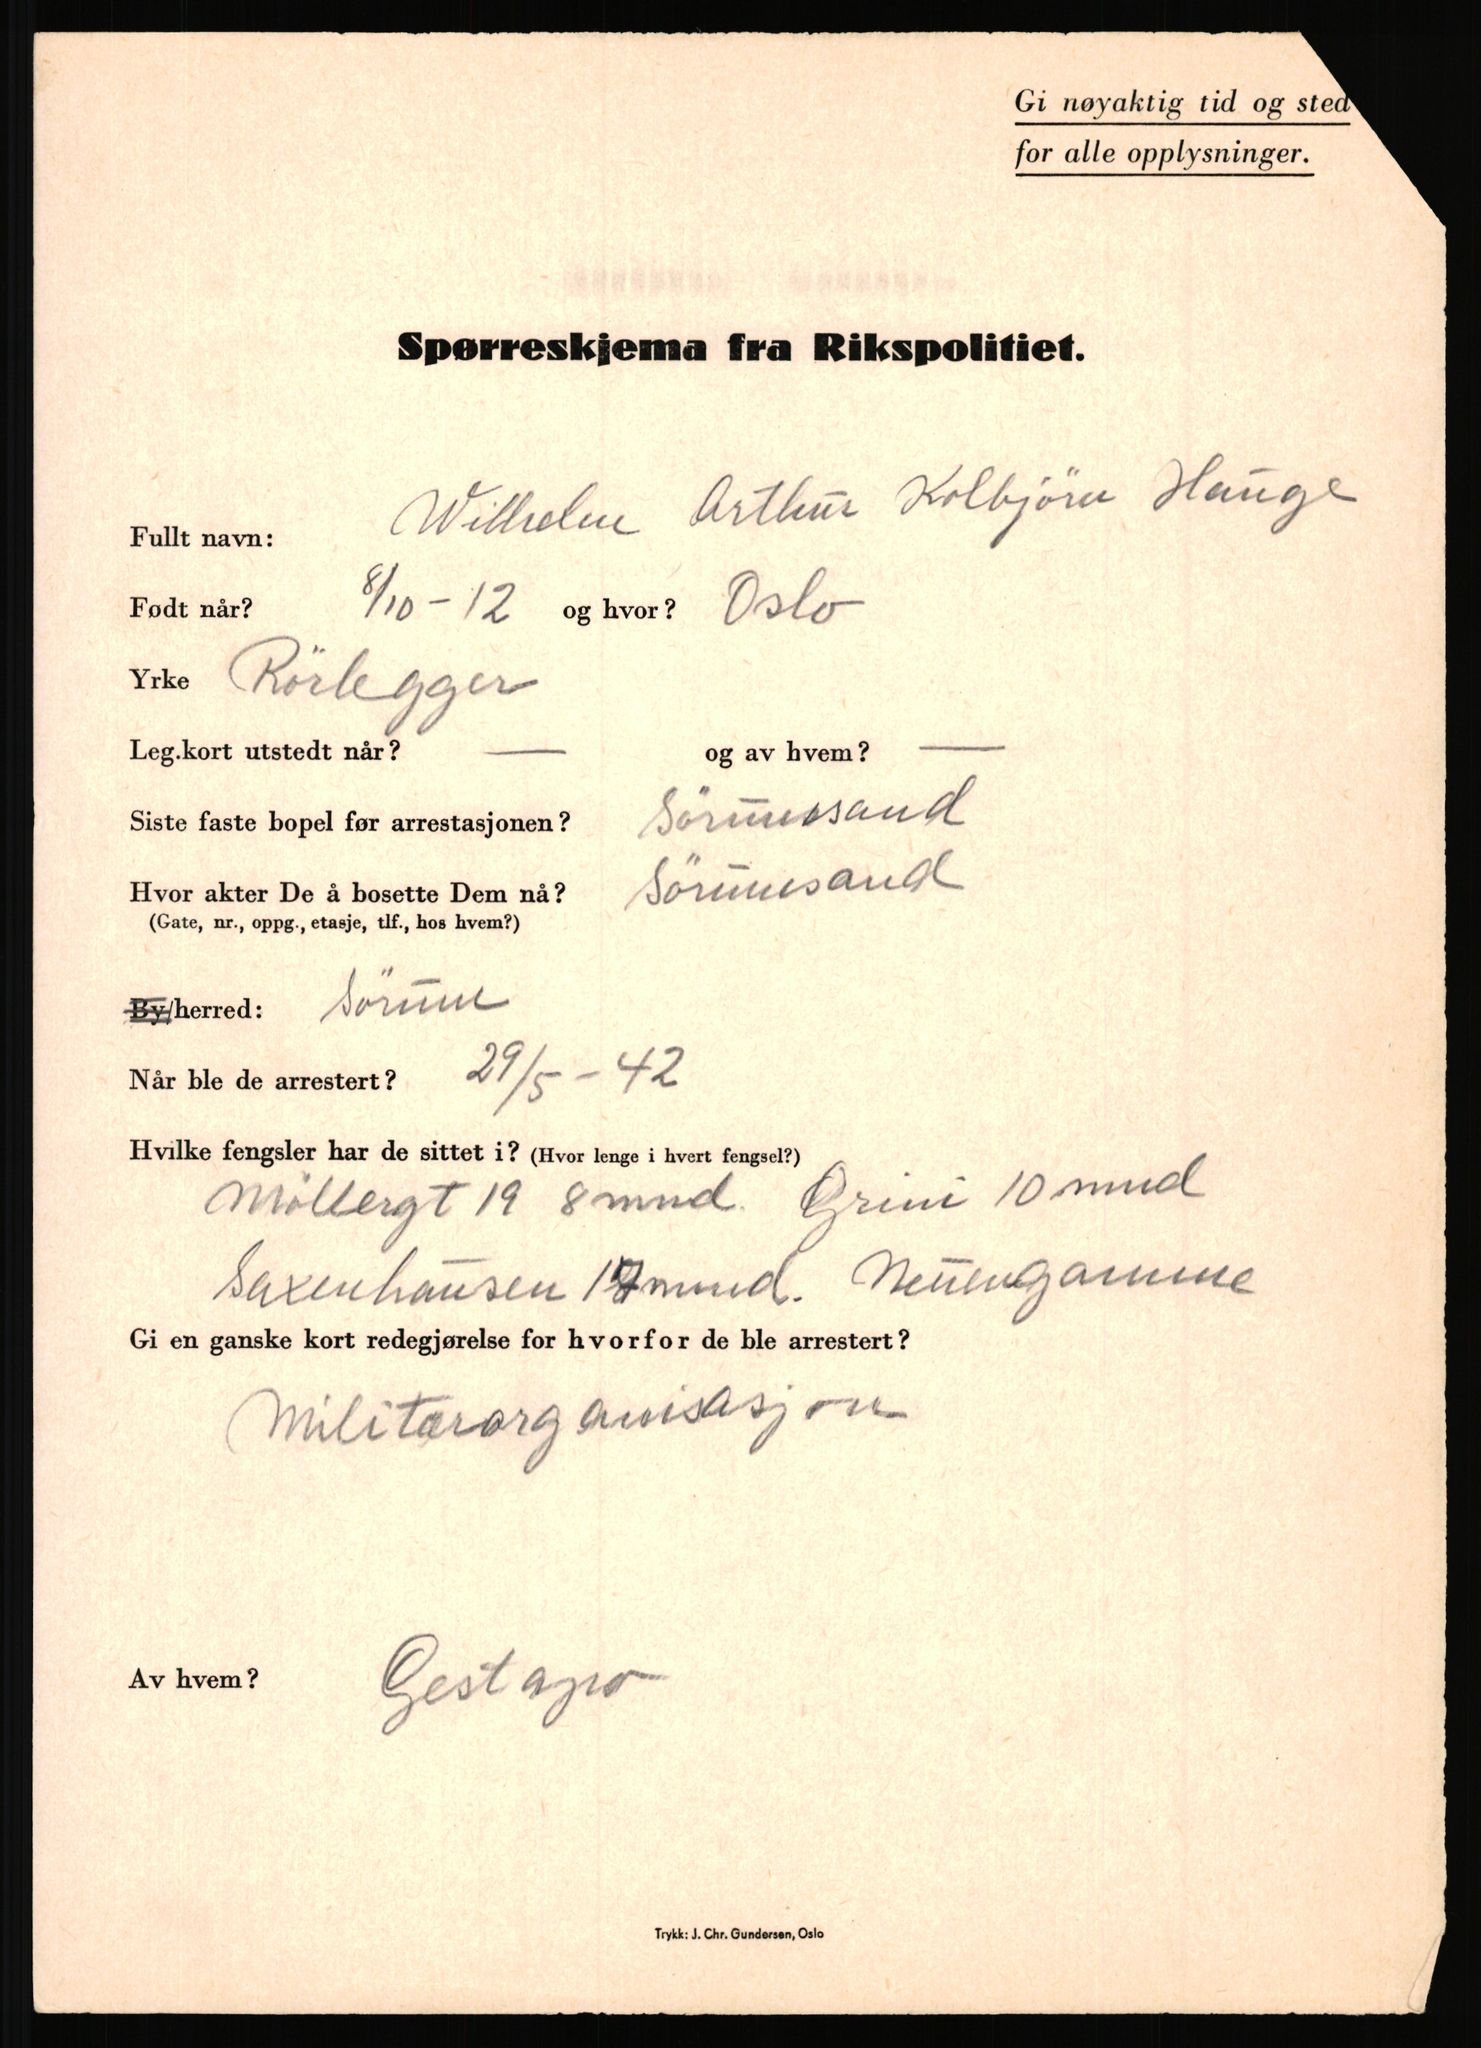 Gi nøyaktig tid og sted
for alle opplysninger.
Spørreskjema fra Rikspolitiet.
Fullt navn: Wilhelm Arthur Kolbjörn Hauge
Født når? 8/10-12 og hvor? Oslo
Yrke Rörlegger
Leg.kort utstedt når? — og av hvem? —
Siste faste bopel før arrestasjonen? Sörumsand
Hvor akter De å bosette Dem nå? Sörumsand
(Gate, nr., oppg., etasje, tlf., hos hvem?)
By/herred: Sörum
Når ble de arrestert? 29/5-42
Hvilke fengsler har de sittet i? (Hvor lenge i hvert fengsel?)
Möllergt 19 8 mnd. Grini 10 mnd
Saxenhausen 17 mnd. Neuengamme
Gi en ganske kort redegjørelse for hvorfor de ble arrestert?
Militærorganisasjon
Av hvem? Gestapo
Trykk: J. Chr. Gundersen, Oslo